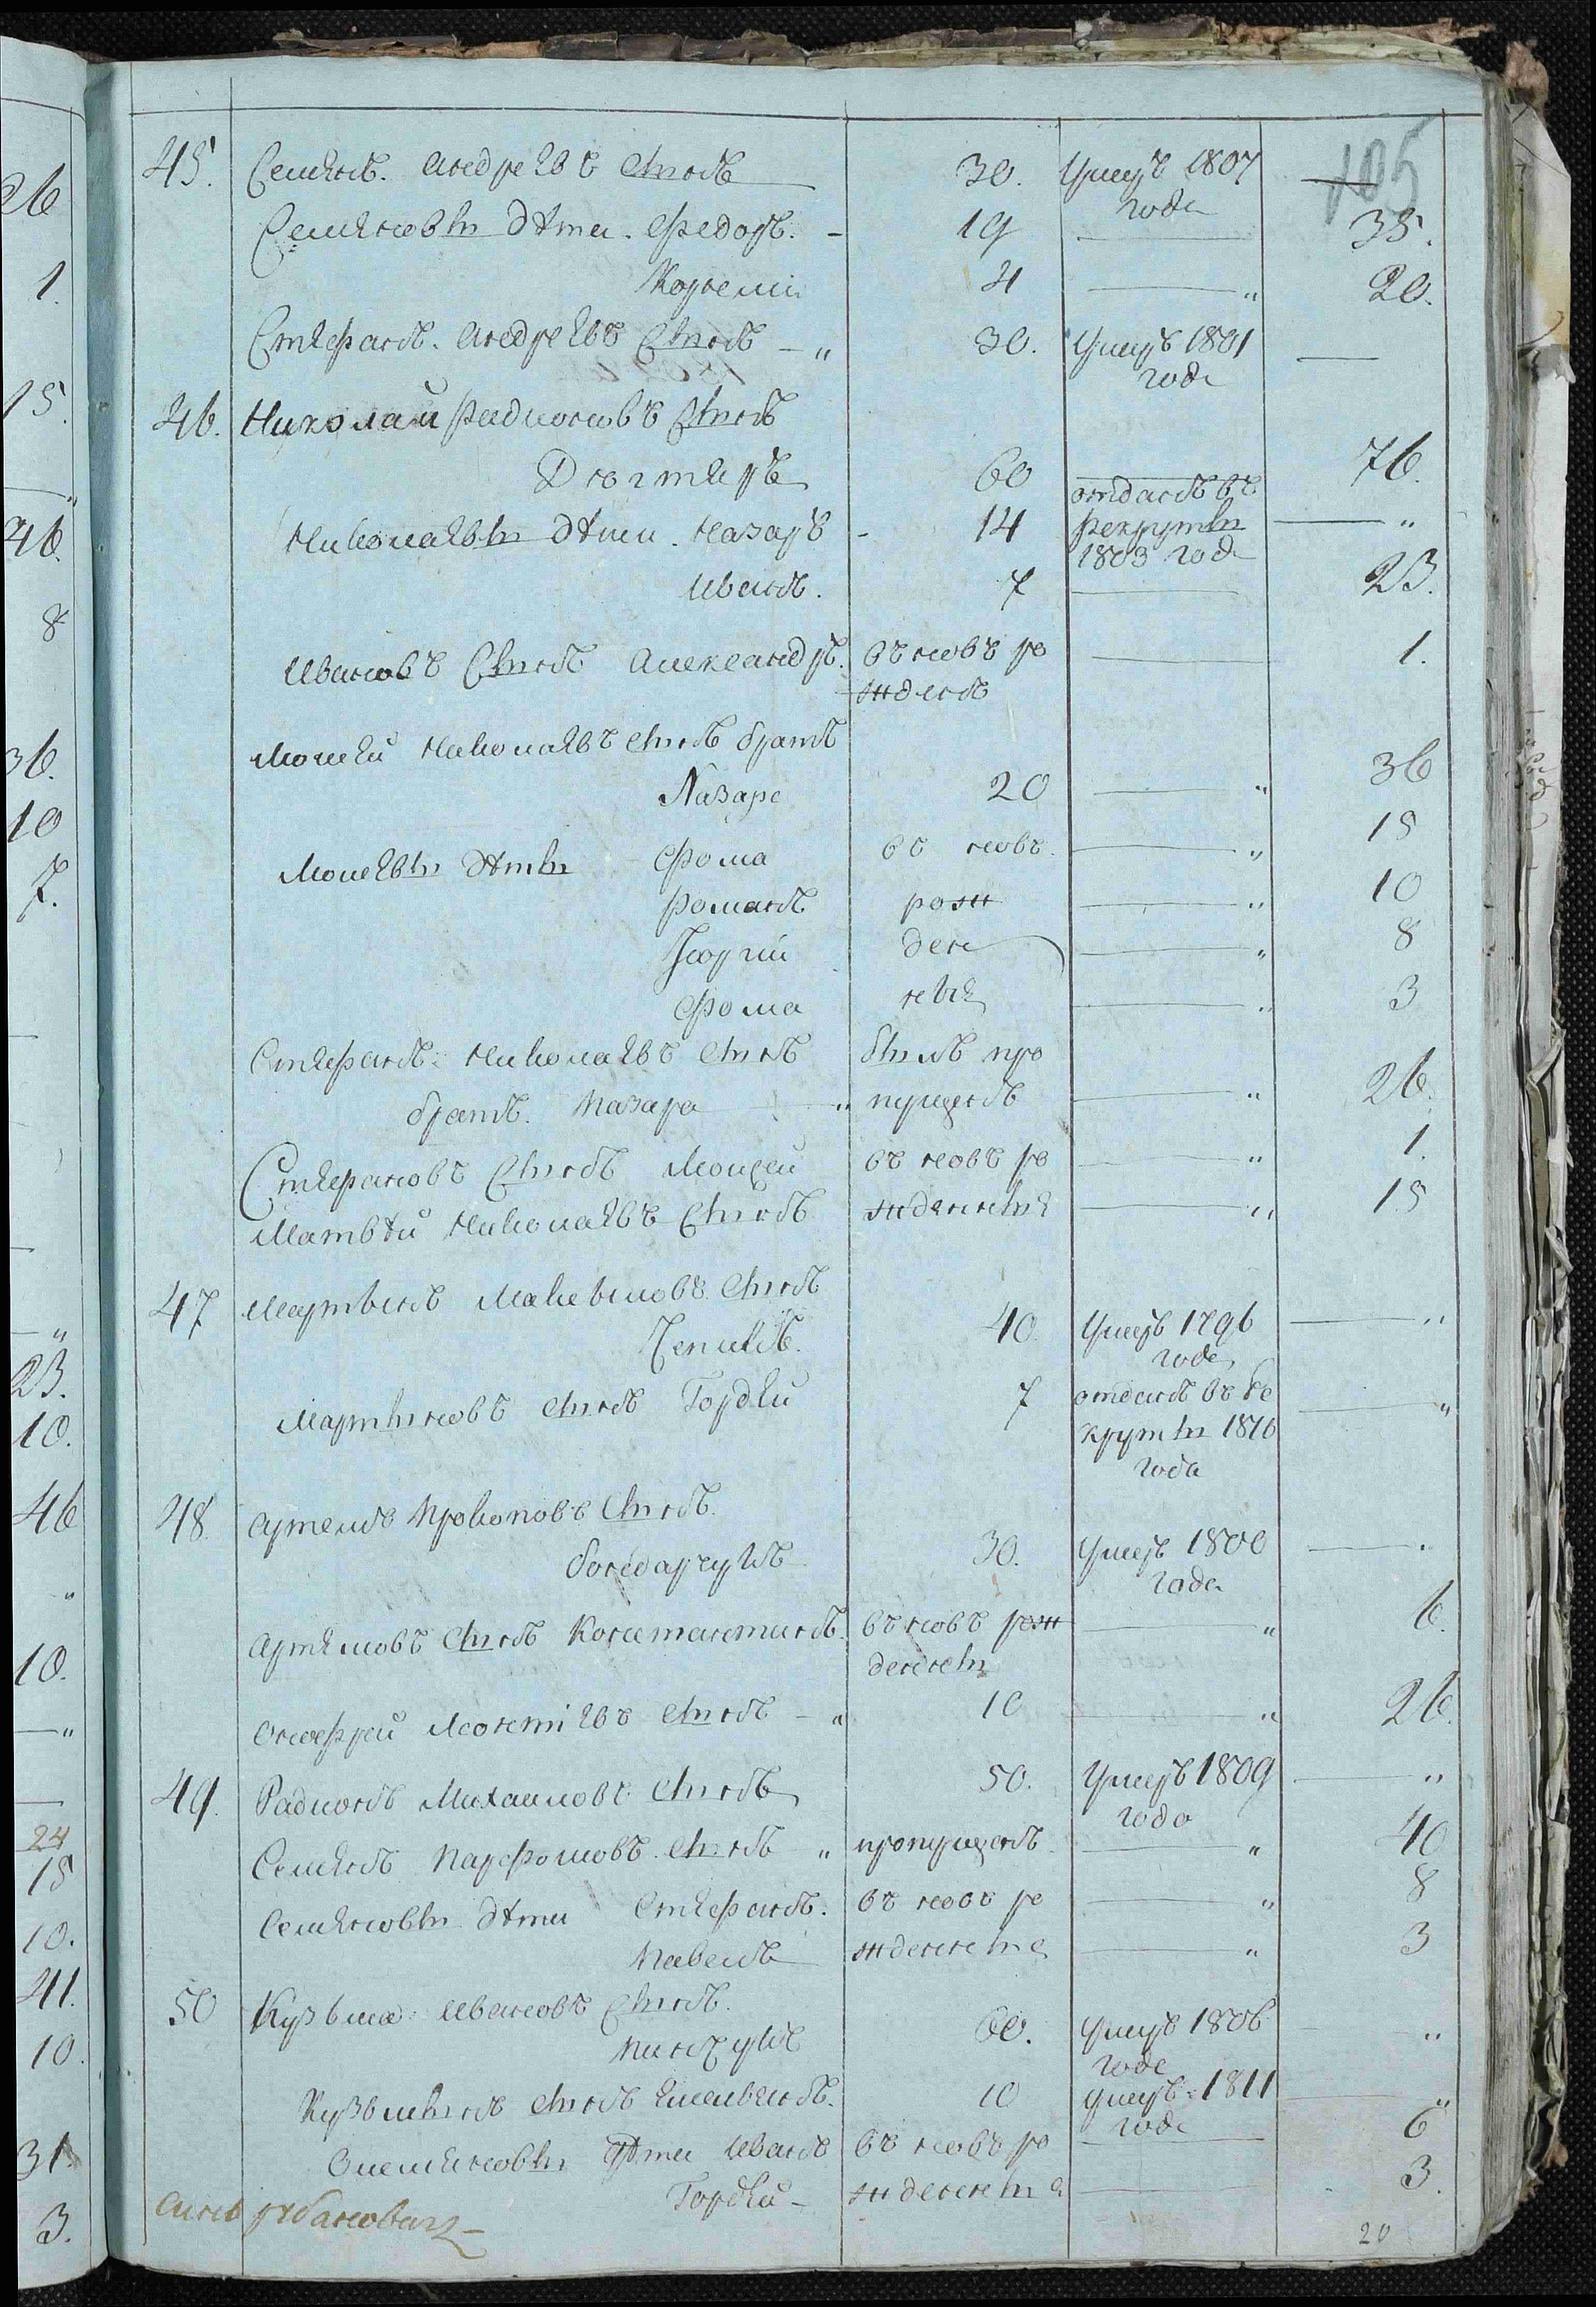 105
45. Семенъ Андреевъ сынъ 30. Умеръ 1807 года —
Семеновы дѣти. Федоръ. - 19 — 35.
Корнейи 4 — „ 20.
Стефанъ. Андреевъ сынъ — „ 30. Умеръ 1801 года —
46. Николай Радионовъ сынъ
Дегтеръ 60 — 76.
Николаевы дѣти. Назаръ - 14 отданъ въ рекруты 1803 года — „
Иванъ. 7 — 23.
Ивановъ сынъ Александръ. въ новъ ро — 1.
жденъ
Мосей Николаевъ сынъ братъ
Назаре 20 — „ 36
Мосеевы дѣты Фома въ новъ. — „ 15
Романъ рож — „ 10
Георгий ден — „ 8
Фома ные — „ 3
Стефанъ Николаевъ сынъ былъ про
братъ. Назара — „ пущенъ — „ 26.
Стефановъ сынъ Мосей въ новъ ро — „ 1.
Матвѣй Николаевъ сынъ жденные — „ 15
47 Мартынъ Маковеовъ сынъ
40. Умеръ 1796 года — „
Мартыновъ сынъ Гордей 7 отданъ въ ре
круты 1810 года — „
48. Артемъ Прокоповъ сынъ.
Бондарчукъ 30. Умеръ 1800 года — „
Артемовъ сынъ Константинъ. въ новъ рож — „ 6.
денны
Онофрей Леонтіевъ сынъ — „ 10 — „ 26.
49. Радионъ Михайловъ сынъ 50. Умеръ 1809 года — „
Семенъ Парфоновъ сынъ „ пропущенъ — „ 40
Семеновы дѣти Стефанъ. въ новъ ро — „ 8
Павелъ жденные — „ 3
50 Кузьма Ивановъ сынъ.
Пинчукъ 60. Умеръ 1806 года — „
Кузьмынъ сынъ Емельянъ. 10 умеръ 1811 года — „
Омеляновы дѣти Иванъ въ новъ ро — 6
Гордей - жденные — 3.
20
26
1.
15.
— „
46.
8
36.
10
7.
—
—
— „
23.
10.
46
„
10.
— „
—
24
15
10.
41.
10.
31.
3.